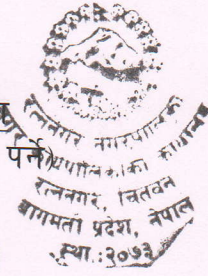 रत्ननगर नगरपालिका
नगरपालिकाको कार्यालय
रत्ननगर, चितवन
बागमती प्रदेश, नेपाल
स्था.:२०७३
पर्ने)